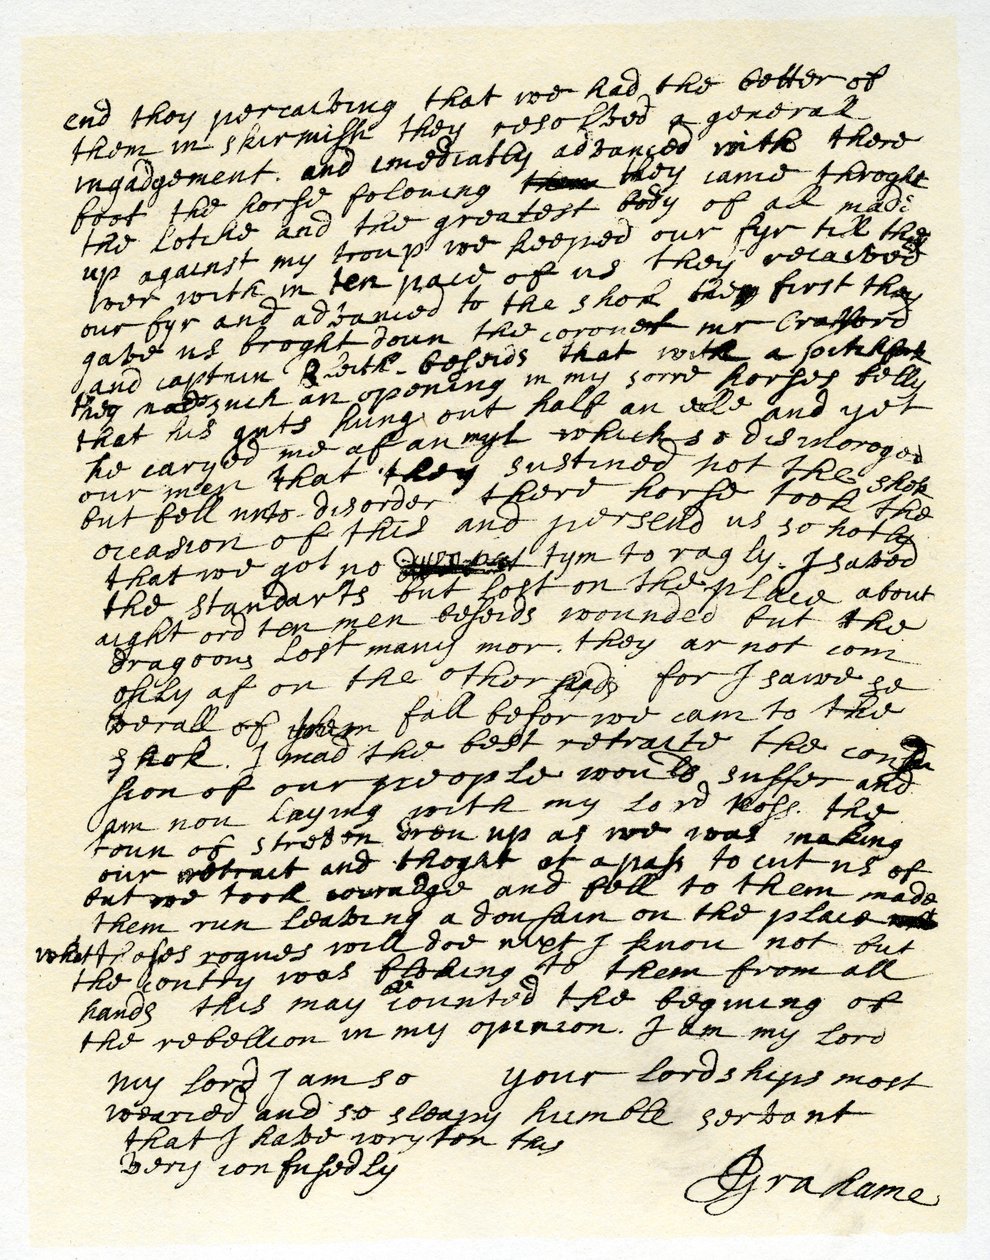 end they percaiving that we had the better of
them in skirmish they resolved a generall
ingadgement. and imediatly advanced with there
foot the horse folouing they came throght
the lotche and the greatest body of all made
up against my troup we keeped our fyr till they
wer with in ten pace of us they recaived
our fyr and advanced to the shok they first they
gave us broght doun the coronet mr Crafford
and captin Bleith. beseids that with a pitchfork
they made such an opening in my sorre horses belly
that his guts hung out half an elle and yet
he caryed me af an myl which so discoroged
our men that they sustined not the shok
but fell unto disorder there horse took the
occasion of this and persend us so hotly
that we got no tym to ragly. I saved
the standarts but lost on the place about
aight ord ten men beseids wounded but the
dragoons lost many mor. they ar not com
esily af on the other syd for I sawe se
verall of them fall befor we cam to the
shok. I mad the best retraite the confu
sion of our people would suffer and
am nou laying with my Lord Ross. the
toun of streven dreu up as we was making
our retrait and thoght of a pass to cut us of
but we took couradge and fell to them made
them run leaving a dousain on the place
what theses rogues will doe next I knou not but
the contry was floking to them from all
hands this may be counted the begining of
the rebellion in my opinion. I am my lord
my lord I am so your lordships most
wearied and so sleapy humble servant
that I have wryton this
very confusedly
JGrahame